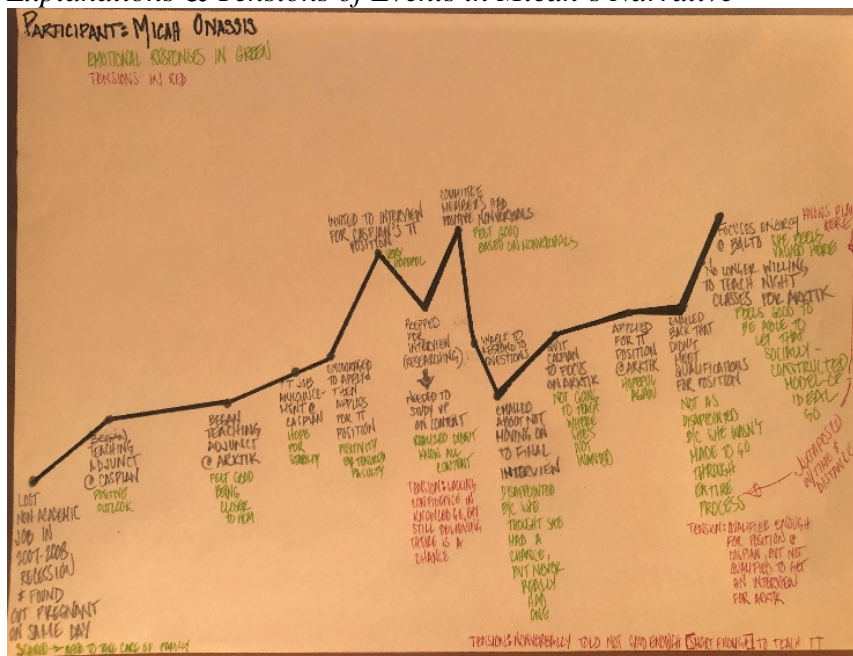 Explanations & Tensions of Events in Micah's Narrative
PARTICIPANT: MICAH ONASSIS
EMOTIONAL RESPONSES IN GREEN
TENSIONS IN RED
LOST
NON-ACADEMIC
JOB IN
2007-2008
RECESSION
& FOUND
OUT PREGNANT
ON SAME DAY
SCARED → NEED TO TAKE CARE OF FAMILY
BEGAN
TEACHING
ADJUNCT
@ CASPIAN
POSITIVE
OUTLOOK
BEGAN
TEACHING
ADJUNCT
@ ARKTIK
FELT GOOD
BEING
CLOSER
TO HOM
TT JOB
ANNOUNCE-
MENT @
CASPIAN
HOPE
FOR
STABILITY
ENCOURAGED
TO APPLY &
THEN
APPLIES
FOR TT
POSITION
POSITIVITY
TENURED
FACULTY
INVITED TO INTERVIEW
FOR CASPIAN'S TT
POSITION
VERY
HOPEFUL
PREPPED
FOR
INTERVIEW
(RESEARCHING)
NEEDED TO
STUDY UP
ON CONTENT
REALIZED DIDN'T
KNOW ALL
CONTENT
TENSION: LACKING
CONFIDENCE IN
KNOWLEDGE, BUT
STILL BELIEVING
THERE IS A
CHANCE
COMMITTEE
MEMBERS HAD
POSITIVE NONVERBALS
FELT GOOD
BASED ON NONVERBALS
UNABLE TO
RESPOND TO
QUESTIONS
EMAILED
ABOUT NOT
MOVING ON
TO FINAL
INTERVIEW
DISAPPOINTED
B/C SHE
THOUGHT SHE
HAD A
CHANCE,
BUT NEVER
REALLY
HAD
ONE
QUIT
CASPIAN
TO FOCUS
ON ARKTIK
NOT GOING
TO TEACH
WHERE
SHE'S
NOT
WANTED
APPLIED
FOR TT
POSITION
@ ARKTIK
HOPEFUL
AGAIN
EMAILED
BACK THAT
DIDN'T
MEET
QUALIFICATIONS
FOR POSITION
NOT AS
DISAPPOINTED
B/C SHE WASN'T
MADE TO GO
THROUGH
ENTIRE
PROCESS
TENSION: QUALIFIED ENOUGH
FOR POSITION @
CASPIAN, BUT NOT
QUALIFIED TO GET
AN INTERVIEW
FOR ARKTIK
FOCUSES ENERGY
@ BALTO
SHE FEELS
VALUED HERE
KNOWS
HERE
NO LONGER WILLING
TO TEACH NIGHT
CLASSES FOR ARKTIK
FEELS GOOD TO
BE ABLE TO
LET THAT
SOCIALLY-
CONSTRUCTED
MODEL OF
IDEAL
GO
JUXTAPOSED
W/TIME &
DISTANCE
TENSION: NONVERBALLY TOLD NOT GOOD ENOUGH [SMART ENOUGH] TO TEACH TT